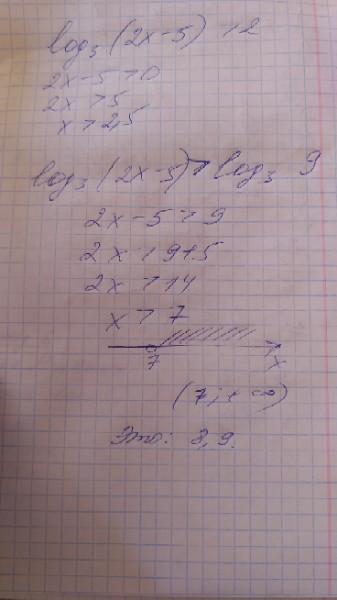 log₃(2x-5) > 2
2x-5>0
2x>5
x>2,5
log₃(2x-5)>log₃ 9
2x-5>9
2x>9+5
2x>14
x>7
7 x
(7;+∞)
Это: 8,9.